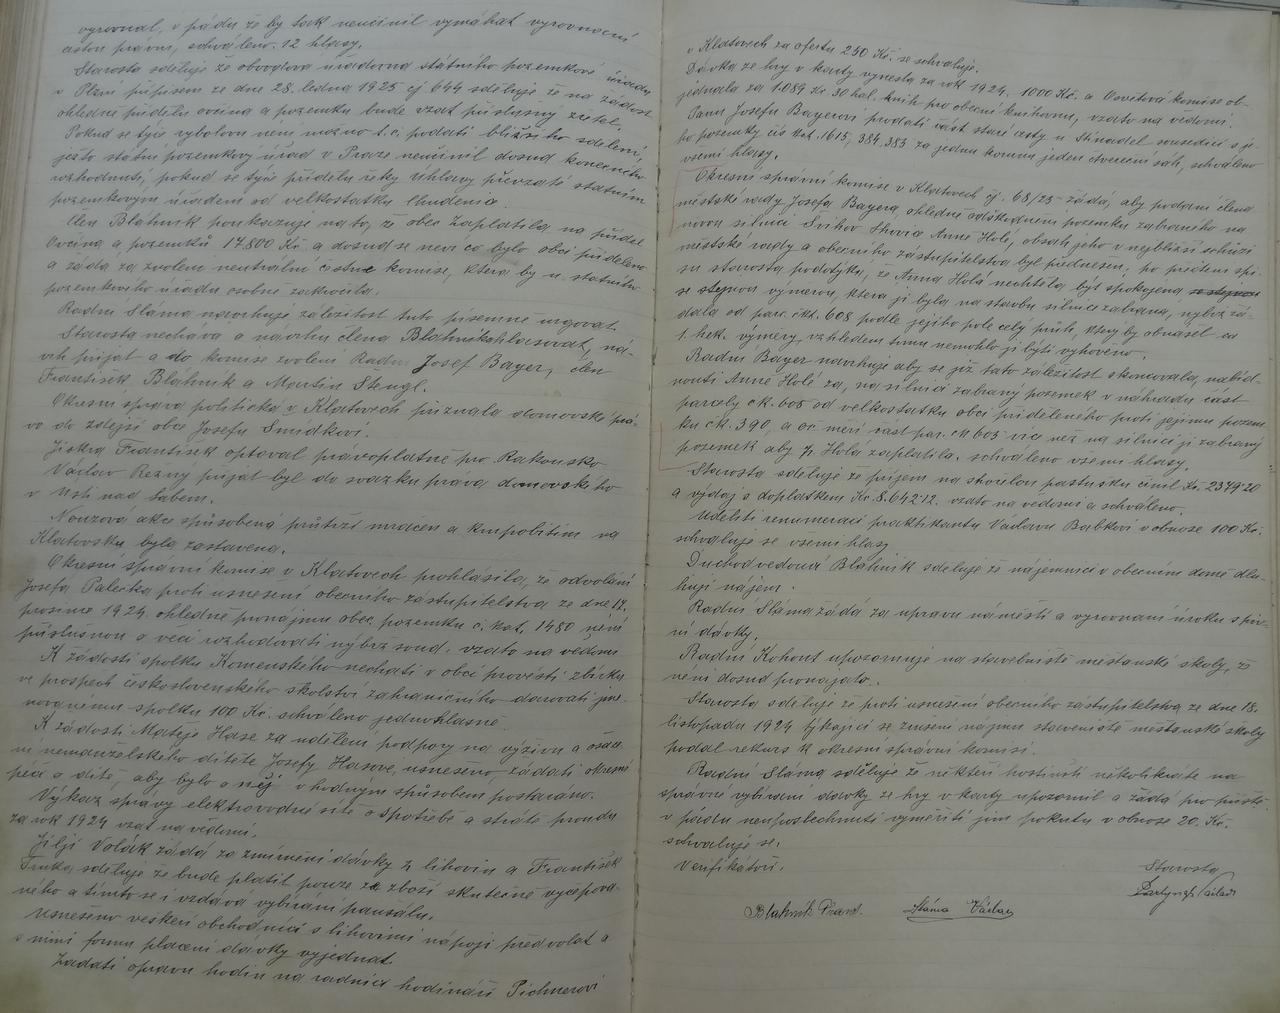 vyrovnal, v pádu že by tak neučinil vymáhat vyrovnání
cestou právní, schváleno 12 hlasy.
Starosta sděluje že obvodová úřadovna státního pozemkové úřadu
v Plzni přípisem ze dne 28. ledna 1925 čj 644 sděluje že na žádost
ohledně přídělu ovčína a pozemků bude vzat příslušný zřetel.
Pokud se týče rybolovu není možno t.č. podati bližšího sdělení,
ježto státní pozemkový úřad v Praze neučinil dosud konečného
rozhodnutí, pokud se týče přídělu řeky Uhlavy převzaté státním
pozemkovým úřadem od velkostatku Chudenice.
Člen Bláhník poukazuje na to, že obec zaplatila na příděl
Ovčína a pozemků 17.800 Kč. a dosud se neví co bylo obci přiděleno
a žádá za zvolení neutrální čestné komise, která by u státního
pozemkového úřadu osobně zakročila.
Radní Sláma navrhuje záležitost tuto písemně urgovat.
Starosta nechává o návrhu člena Bláhníka hlasovat, ná-
vrh přijat a do komise zvoleni Radní Josef Bayer, člen
František Bláhník a Martin Štengl.
Okresní správa politická v Klatovech přiznala domovské prá-
vo do zdejší obce Josefu Smudkovi.
Jiskra František optoval právoplatně pro Rakousko
Václav Řezný přijat byl do svazku práva domovského
v Ústí nad Labem.
Nouzová akce způsobená průtrží mračen a krupobitím na
Klatovsku byla zastavena.
Okresní správní komise v Klatovech prohlásila, že odvolání
Josefa Palečka proti usnesení obecního zástupitelstva ze dne 17.
prosince 1924 ohledně pronájmu obec. pozemku č. kat. 1480 není
příslušnou o věci rozhodovati nýbrž soud. vzato na vědomí
K žádosti spolku Komenského nechati v obci provésti sbírku
ve prospěch československého školství zahraničního darovati jme-
novanému spolku 100 Kč. schváleno jednohlasně
K žádosti Matěje Hase za udělení podpory na výživu a ošace-
ní nemanželského dítěte Josefy Hasové, usneseno žádati okresní
péči o dítě, aby bylo o něj vhodným způsobem postaráno.
Výkaz správy elektrovodné sítě o spotřebě a ztrátě proudu
za rok 1924 vzat na vědomí.
Jiljí Volák žádá za zmírnění dávky z lihovin a František
sděluje že bude platit pouze ze zboží skutečně vyčepova-
ného a tímto se i vzdává vybírání paušálu.
Usneseno veškeré obchodníci s lihovými nápoji předvolat a
s nimi formu placení dávky vyjednat.
Zadati opravu hodin na radnici hodináři Pichnerovi
v Klatovech za ofertu 250 Kč. se schvaluje.
Dávka ze hry v karty vynesla za rok 1924. 1000 Kč. a Osvětová komise ob-
jednala za 1.089 Kč. 30 hal. knih pro obecní knihovnu, vzato na vědomí.
Panu Josefu Bayerovi prodati část staré cesty u Stínadel sousedící s je-
ho pozemky čís kat. 1615, 384, 383 za jednu korunu jeden čtvereční sáh, schváleno
všemi hlasy.
Okresní správní komise v Klatovech čj. 68/25 žádá, aby podání člena
městské rady Josefa Bayera, ohledně odškodnění pozemku zabraného na
novou silnici Švihov Anně Holé, obsah jeho v nejbližší schůzi
městské rady a obecního zástupitelstva byl přednesen, po přečtení spi-
su starosta podotýká, že Anna Holá nechtěla, být spokojena
se stejnou výměrou, která jí byla na stavbu silnice zabrána, nýbrž žá-
dala od parc. čkt. 608 podle jejího pole celý pruh, který by obnášel as
1. hek. výměry vzhledem tomu nemohlo jí býti vyhověno.
Radní Bayer navrhuje aby se již tato záležitost skoncovala, nabíd-
nouti Anně Holé za, na silnici zabraný pozemek v náhradu část
parcely čk. 605 od velkostatku obci přiděleného proti jejímu pozem-
ku čk. 390, a oč měří část par. čk 605 víc než na silnici jí zabraný
pozemek aby p. Holá zaplatila. schváleno všemi hlasy.
Starosta sděluje že příjem na školou pastušku činil Kč. 2379.20
a výdaj s doplatkem Kč. 8.642.12. vzato na vědomí a schváleno.
Uděliti renumeraci praktikantu Václavu Babkovi v obnose 100 Kč.
schvaluje se všemi hlasy
Důchod vedoucí Bláhník sděluje že nájemníci v obecním domě dlu-
hují nájem.
Radní Sláma žádá za úpravu náměstí a vyrovnání úroku s piv-
ní dávky.
Radní Kohout upozorňuje na staveniště měšťanské školy, že
není dosud pronajato.
Starosta sděluje že proti usnesení obecního zastupitelstva ze dne 18.
listopadu 1924 týkající se zrušení nájmu staveniště měšťanské školy
podal rekurs k okresní správní komisi.
Radní Sláma sděluje že někteří hostinští několikráte na
správné vybírání dávky ze hry v karty upozornil a žádá pro příště
v pádu neuposlechnutí vyměřiti jim pokutu v obnose 20. Kč.
schvaluje se.
Verifikátoři.
Starosta
Bláhník Frant. Sláma Václav